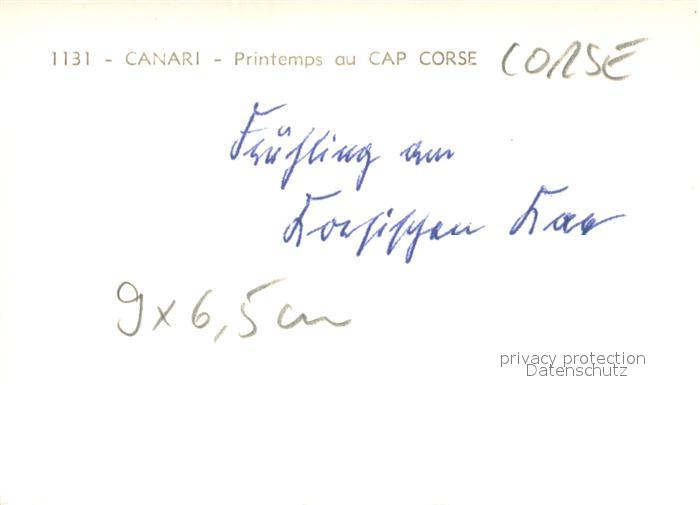 1131 - CANARI - Printemps au CAP CORSE CORSE
Frühling am
Korsischen Kap
9x6,5cm
privacy protection
Datenschutz